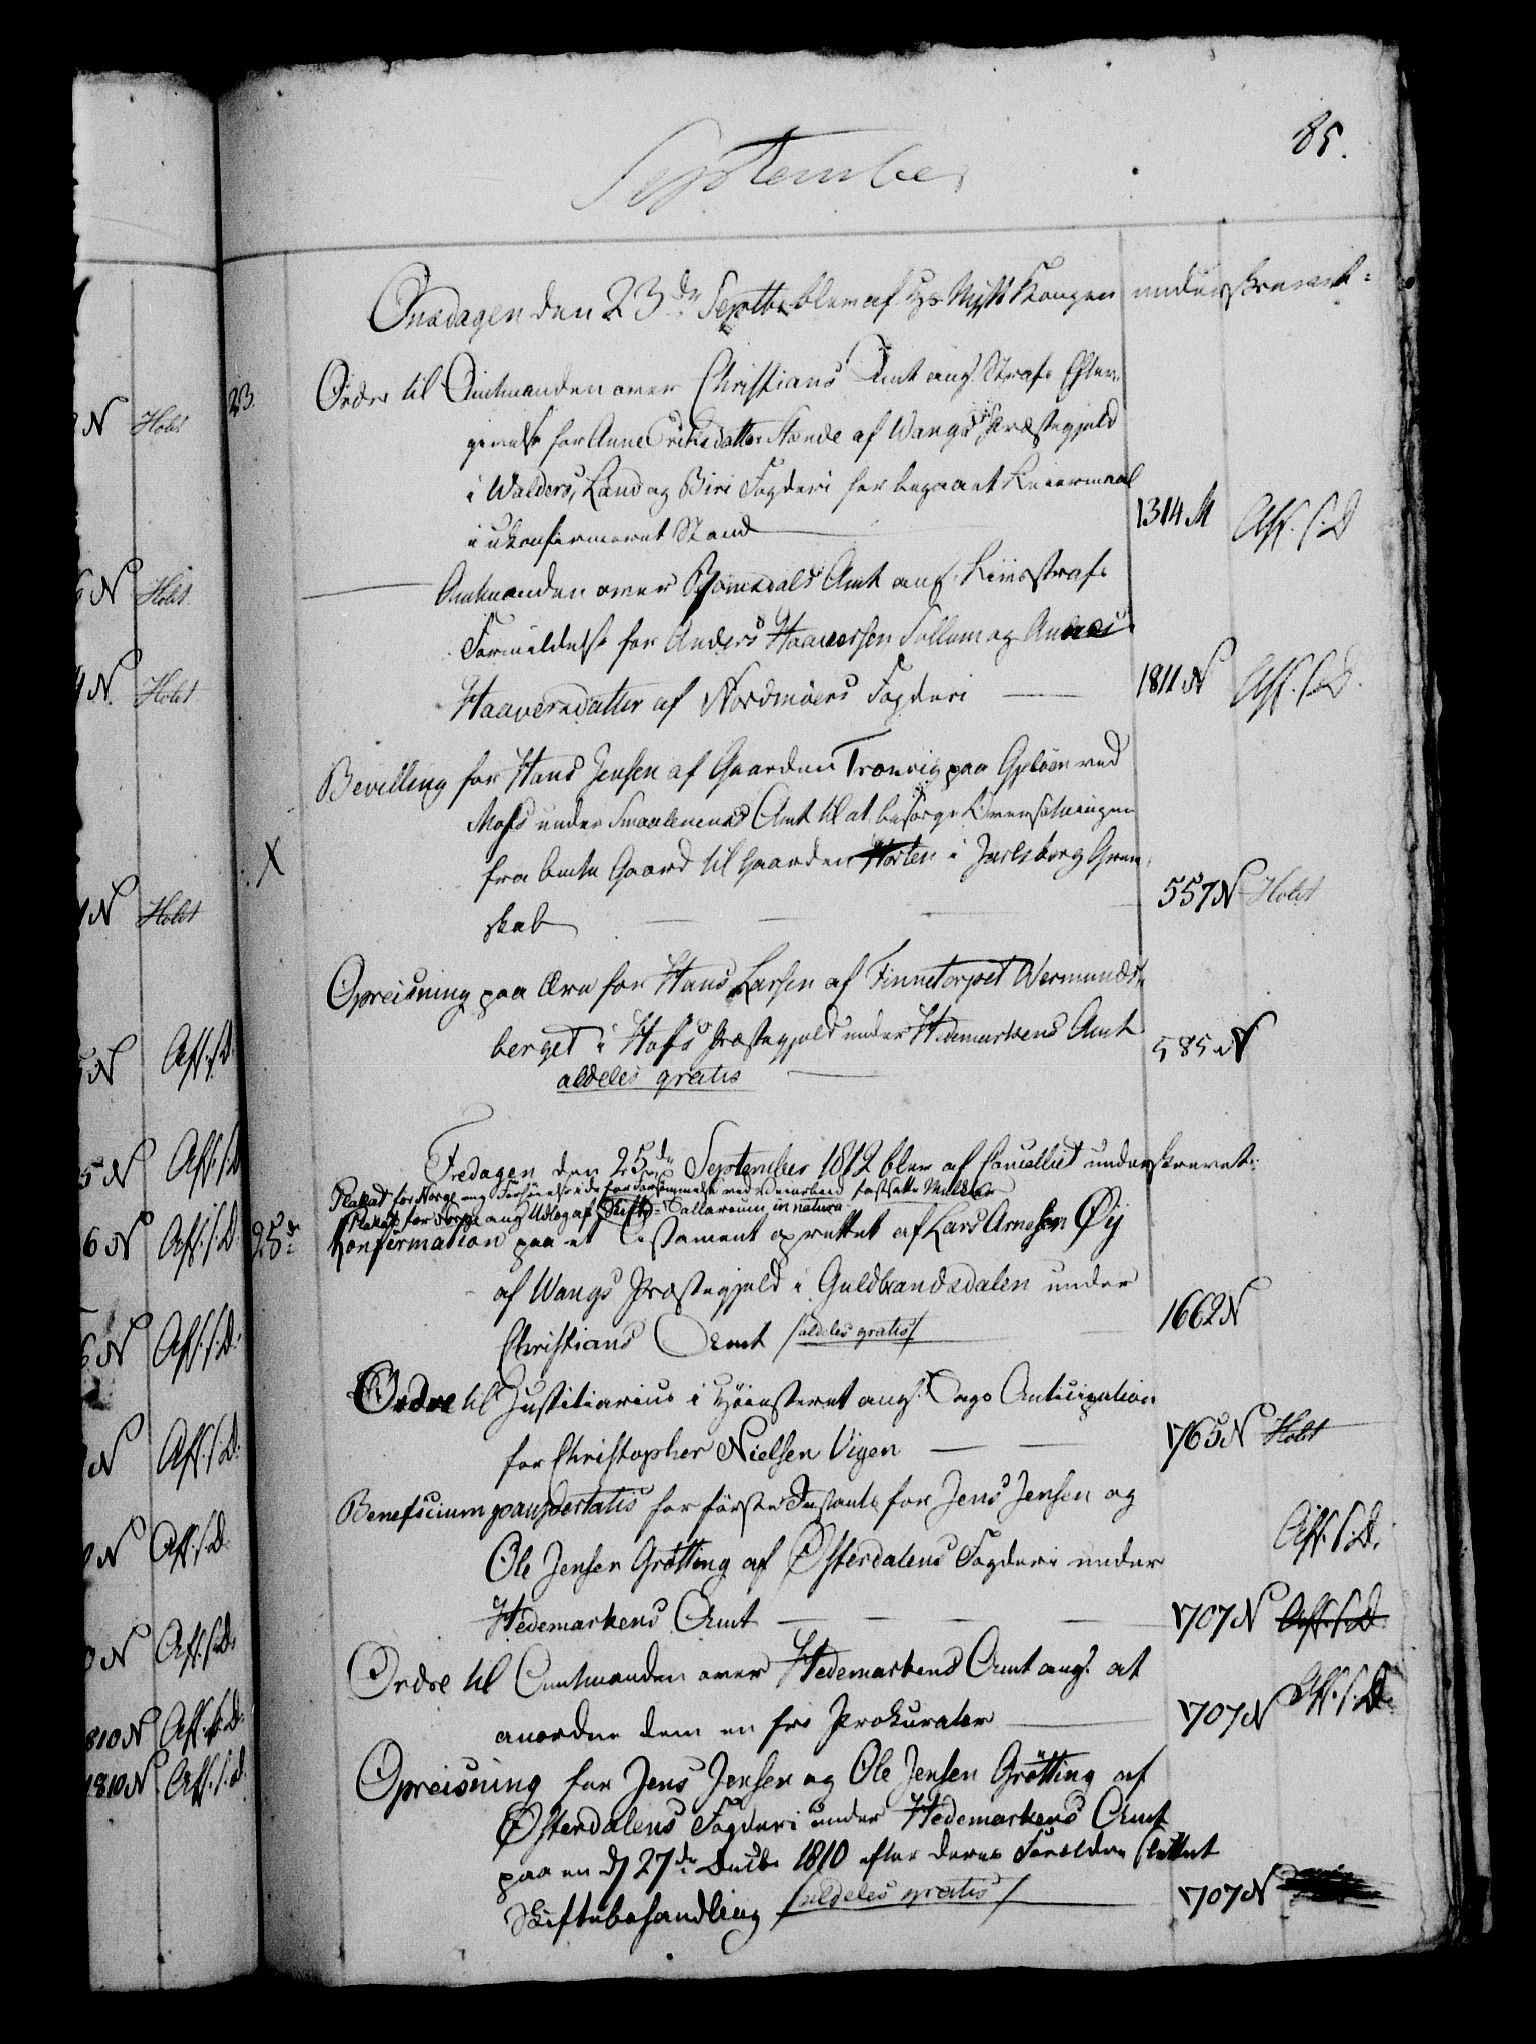 85.
September
Onsdagen den 23de Septbr blev af Hs Mjst Kongen underskrevet:
23. Ordre til Amtmanden over Christians Amt ang. Strafs Efter-
givelse for Anne Eriksdatter Stende af Wangs Præstegjeld
i Walders, Land og Biri Fogderi for begaaet Leiermaal
i ukonfirmeret Stand 1314 M Aff. s. D
— Amtmanden over Romsdals Amt ang. Livsstrafs
Formildelse for Anders Haaversen Sollum og
Haaversdatter af Nordmøers Fogderi — 1811 N Aff. s. D.
Bevilling for Hans Jensen af Gaarden Tronvig paa Gjeløen ved
Moss under Smaalenenes Amt til at besørge Overfarten
X fra bemte Gaard til Gaarden Horten i Jarlsberg Grev-
skab — 557 N Holst
Opreisning paa Ære for Hans Larsen af Finnetorpet Wermunds-
berget i Hofs Præstegjeld under Hedemarkens Amt
aldeles gratis — 585 N
Fredagen den 25de September 1812 blev af Cancelliet underskrevet:
Plakat for Norge ang Forhøielse i de for Forsømmelse ved Veiarbeid fastsatte Mulcter
Plakat for Norge ang Udlæg af Skifte-Sallarium in natura
25de Konfirmation paa et Testament oprettet af Lars Arnesen Øy
af Wangs Præstegjeld i Guldbrandsdalen under
Christians Amt /aldeles gratis/ 1662 N
Ordre til Justitiarius i Høiesteret ang. Sags Anticipation
for Christopher Nielsen Vigen — 1765 N Holst
Beneficium paupertatis for første Instants for Jens Jensen og
Ole Jensen Grøtting af Østerdalens Fogderi under Aff. s. D.
Hedemarkens Amt — 1707 N Aff. s. D.
Ordre til Amtmanden over Hedemarkens Amt ang. at
anordne dem en fri Prokurator — 1707 N Aff. s. D.
Opreisning for Jens Jensen og Ole Jensen Grøtting af
Østerdalens Fogderi under Hedemarkens Amt
paa en d 27de Decbr 1810 efter deres Forældre sluttet
Skiftebehandling /aldeles gratis/ 1707 N